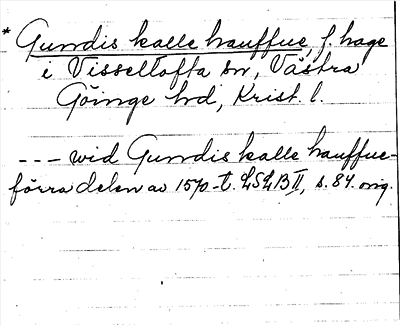 * Gundis kalle hauffue, f. hage
i Visseltofta sn, Västra
Göinge hd, Krist. l.
--- wid Gundis kalle hauffue-
förra delen av 1570-t. LSLB II, s. 84. orig.